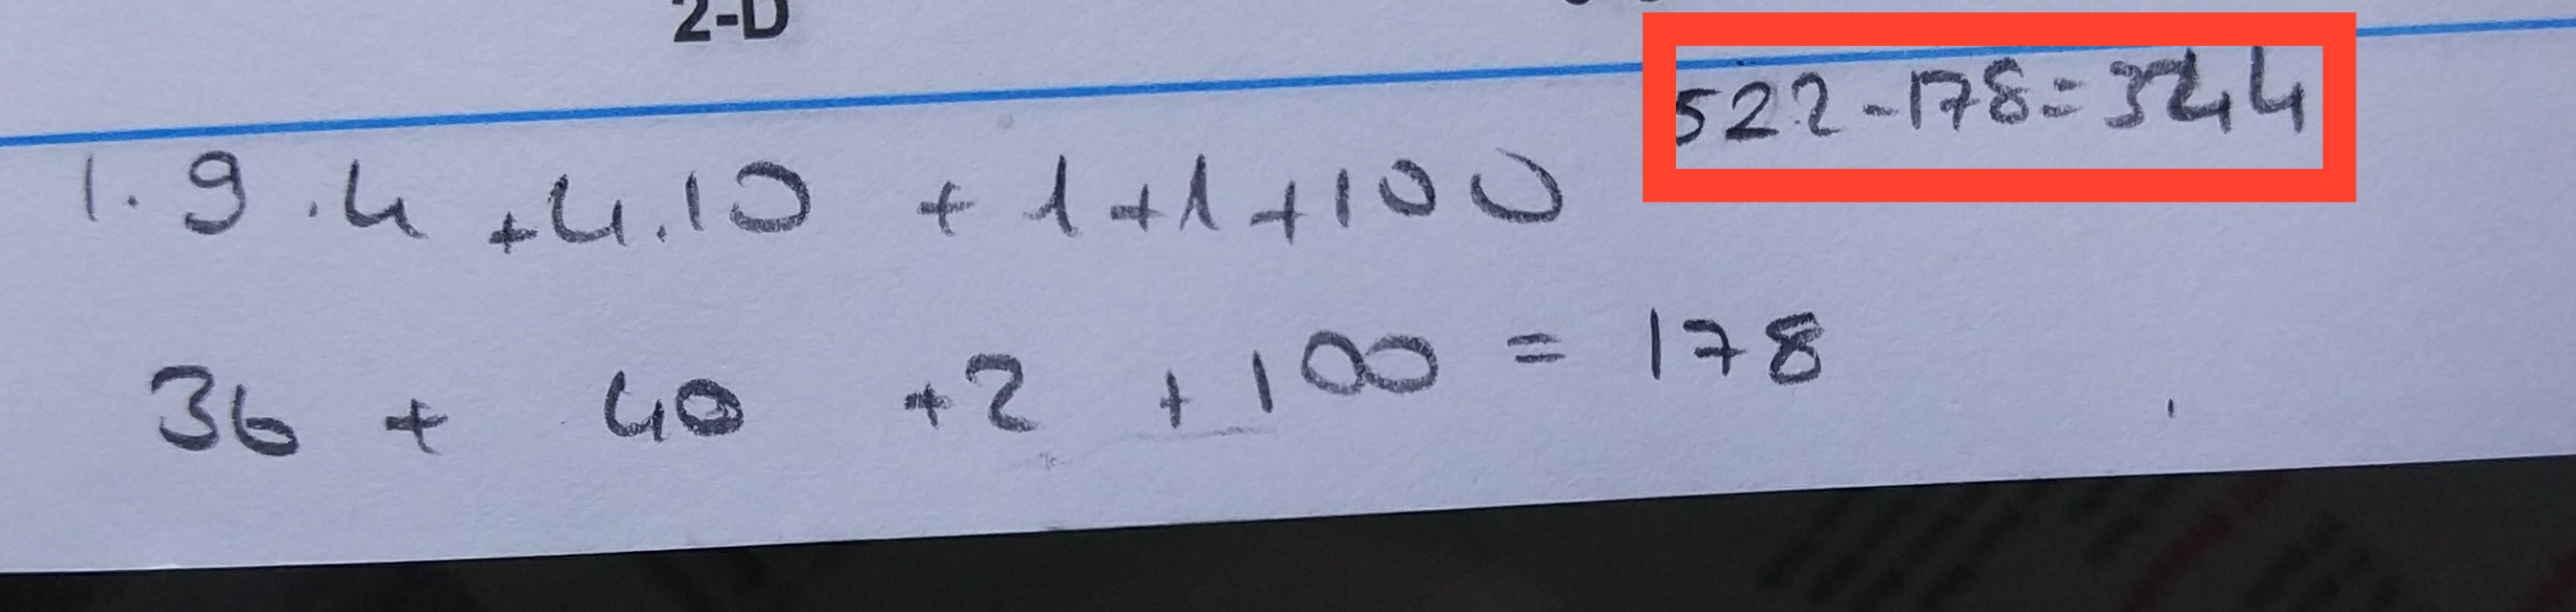 2-D
522-178=344
1.9.4+4.10+1+1+100
36+40+2+100=178